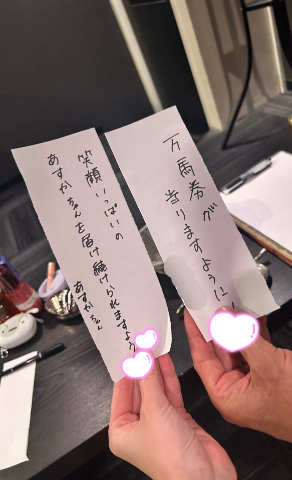 万馬券が
当りますように!
笑顔いっぱいの
あすかちゃんを届け続けられますよう
あすかちゃん